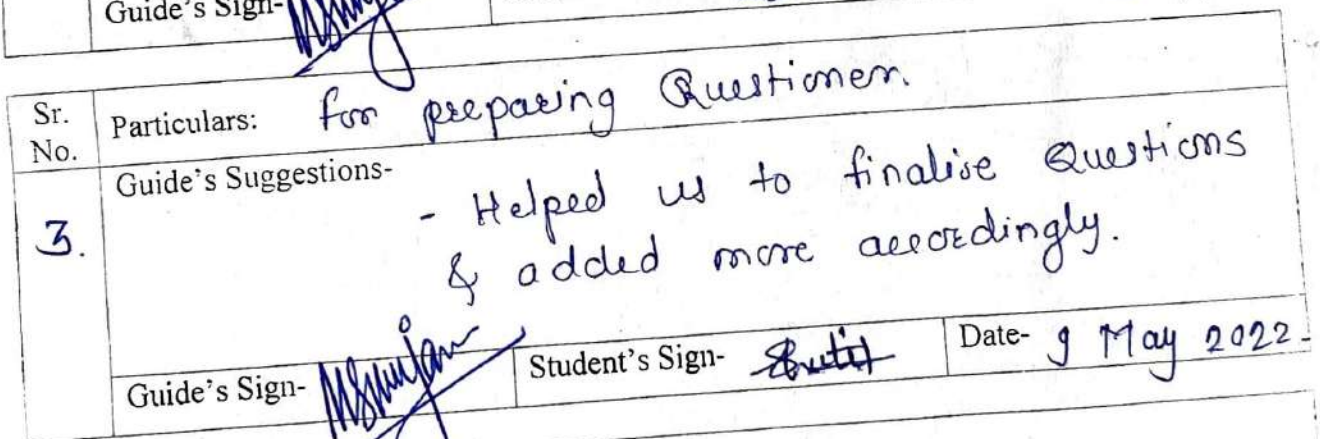 Guide's Sign-
Sr. No.
Particulars: for preparing Questioner.
3.
Guide's Suggestions-
- Helped us to finalise Questions
& added more accordingly.
Guide's Sign-
Student's Sign-
Date- 9 May 2022-